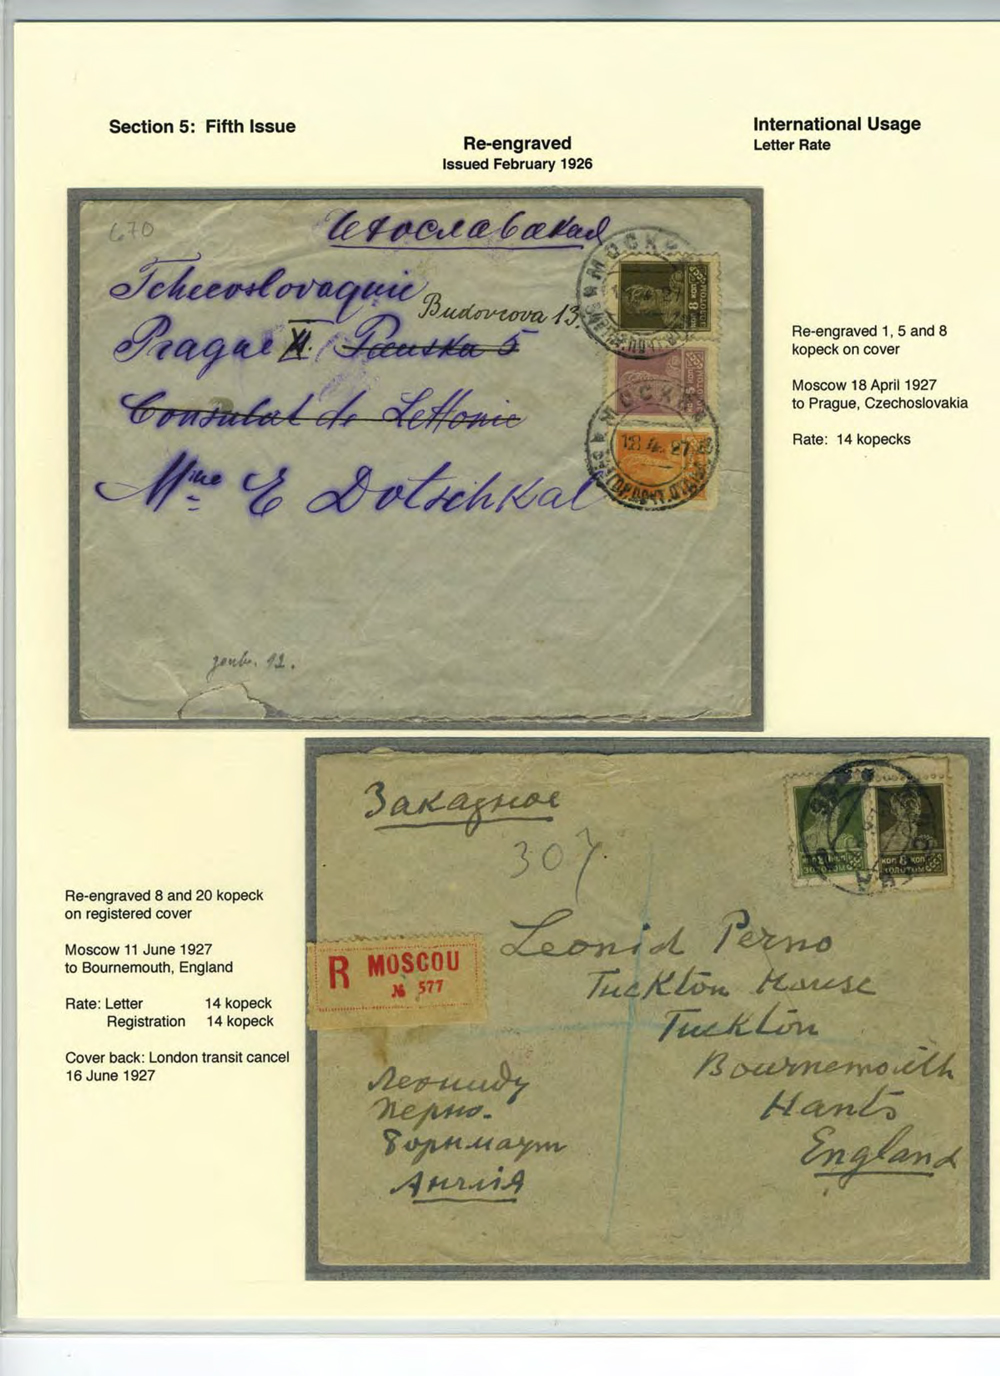 Section 5: Fifth Issue
Re-engraved
Issued February 1926
International Usage
Letter Rate
670
Tchecoslovaquie
Budovcova 13.
Prague XII. 5
Consulat de Lettonie
Mme E Dotschkal
МОСКВА
8 КОП
ЗОЛОТОМ
МОСКВА
18 4 27
Re-engraved 1, 5 and 8
kopeck on cover
Moscow 18 April 1927
to Prague, Czechoslovakia
Rate: 14 kopecks
Re-engraved 8 and 20 kopeck
on registered cover
Moscow 11 June 1927
to Bournemouth, England
Rate: Letter 14 kopeck
Registration 14 kopeck
Cover back: London transit cancel
16 June 1927
Заказное
307
КОП 8 КОП
ЗОЛОТОМ ЗОЛОТОМ
R MOSCOU
№ 577
Leonid Perno
Tuckton House
Tuckton
Bournemouth
Hants
England
Леониду
Перно.
Борнмаут
Англія